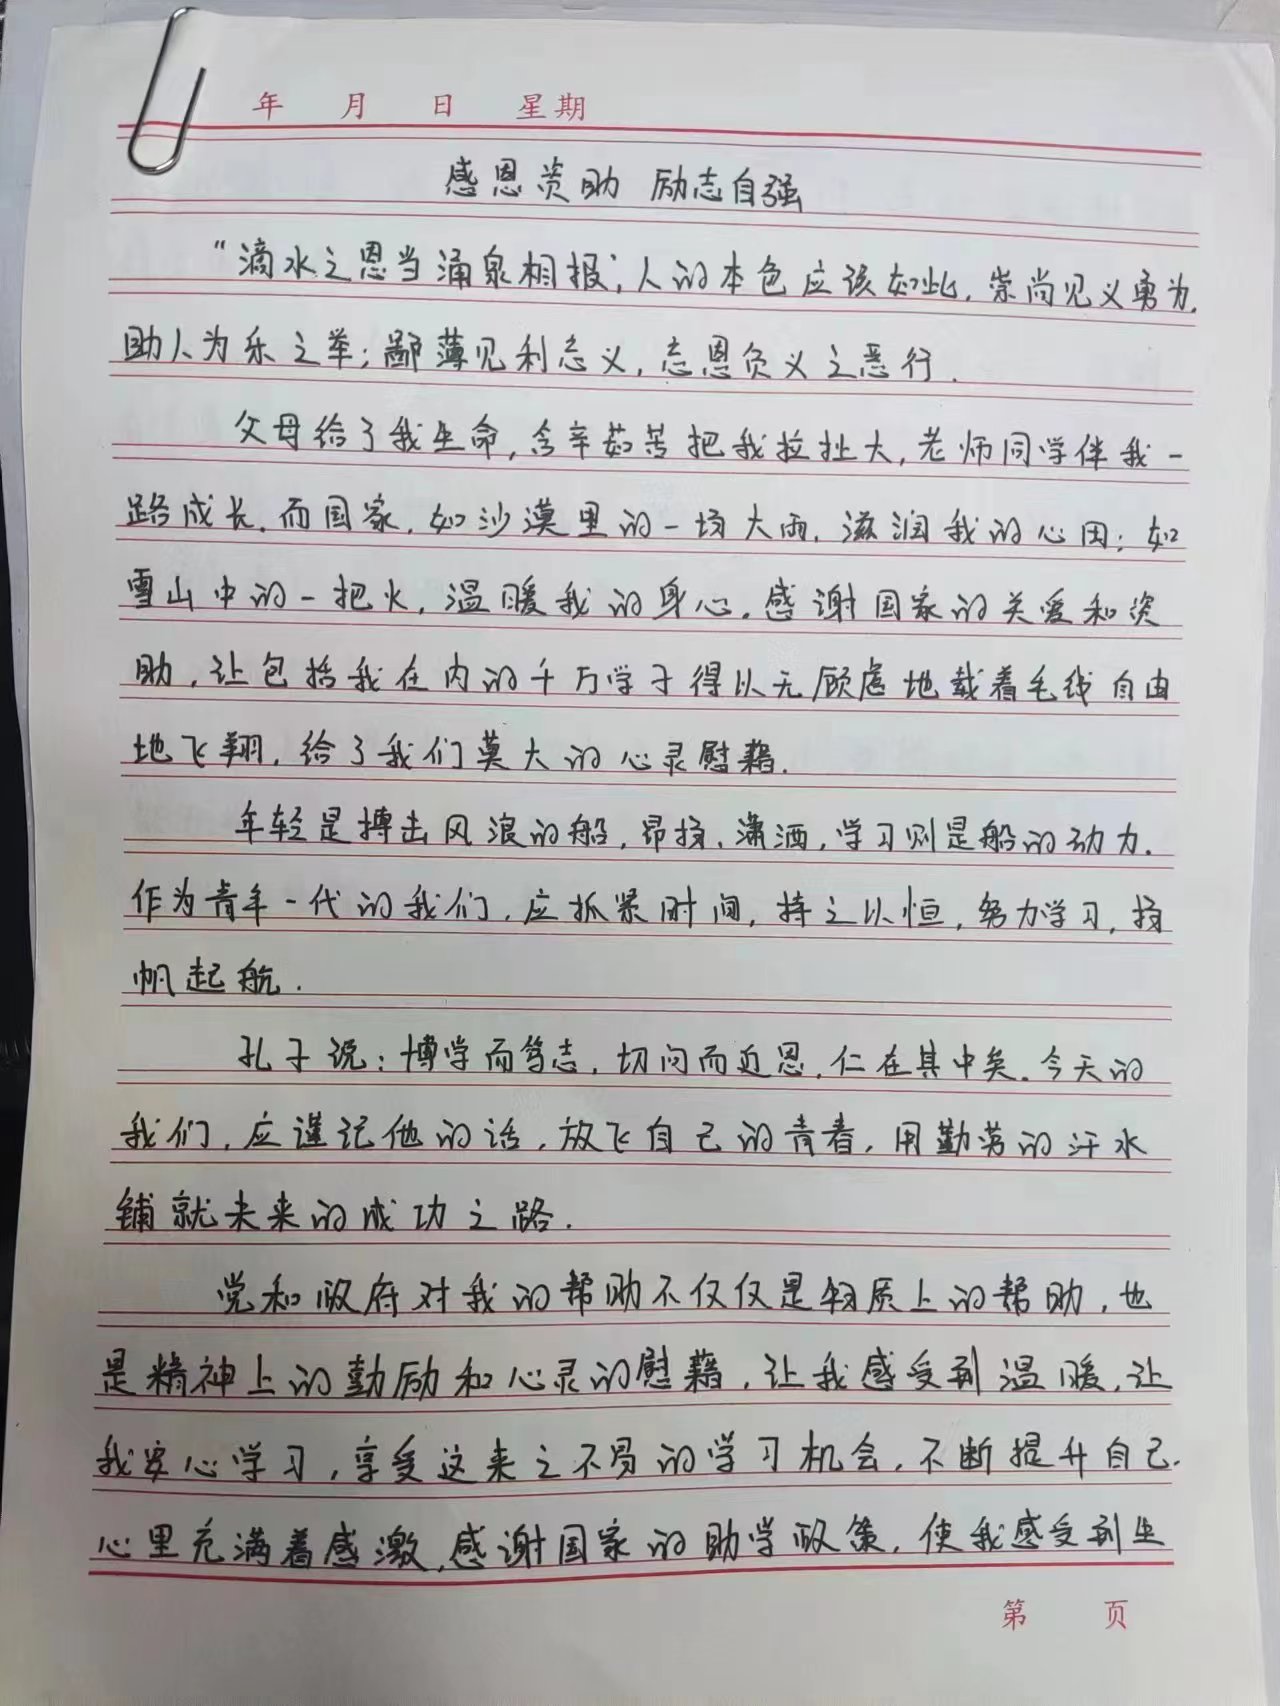 年 月 日 星期
感恩资助 励志自强
“滴水之恩当涌泉相报”,人的本色应该如此.崇尚见义勇为.
助人为乐之举;鄙薄见利忘义,忘恩负义之恶行.
父母给了我生命,含辛茹苦把我拉扯大,老师同学伴我一
路成长.而国家,如沙漠里的一场大雨,滋润我的心田;如
雪山中的一把火,温暖我的身心.感谢国家的关爱和资
助,让包括我在内的千万学子得以无顾虑地载着毛线自由
地飞翔,给了我们莫大的心灵慰藉.
年轻是搏击风浪的船,昂扬、潇洒,学习则是船的动力.
作为青年一代的我们,应抓紧时间,持之以恒,努力学习,扬
帆起航.
孔子说:博学而笃志,切问而近思,仁在其中矣.今天的
我们,应谨记他的话,放飞自己的青春,用勤劳的汗水
铺就未来的成功之路.
党和政府对我的帮助不仅仅是物质上的帮助,也
是精神上的鼓励和心灵的慰藉,让我感受到温暖,让
我安心学习,享受这来之不易的学习机会,不断提升自己.
心里充满着感激,感谢国家的助学政策,使我感受到生
第 页